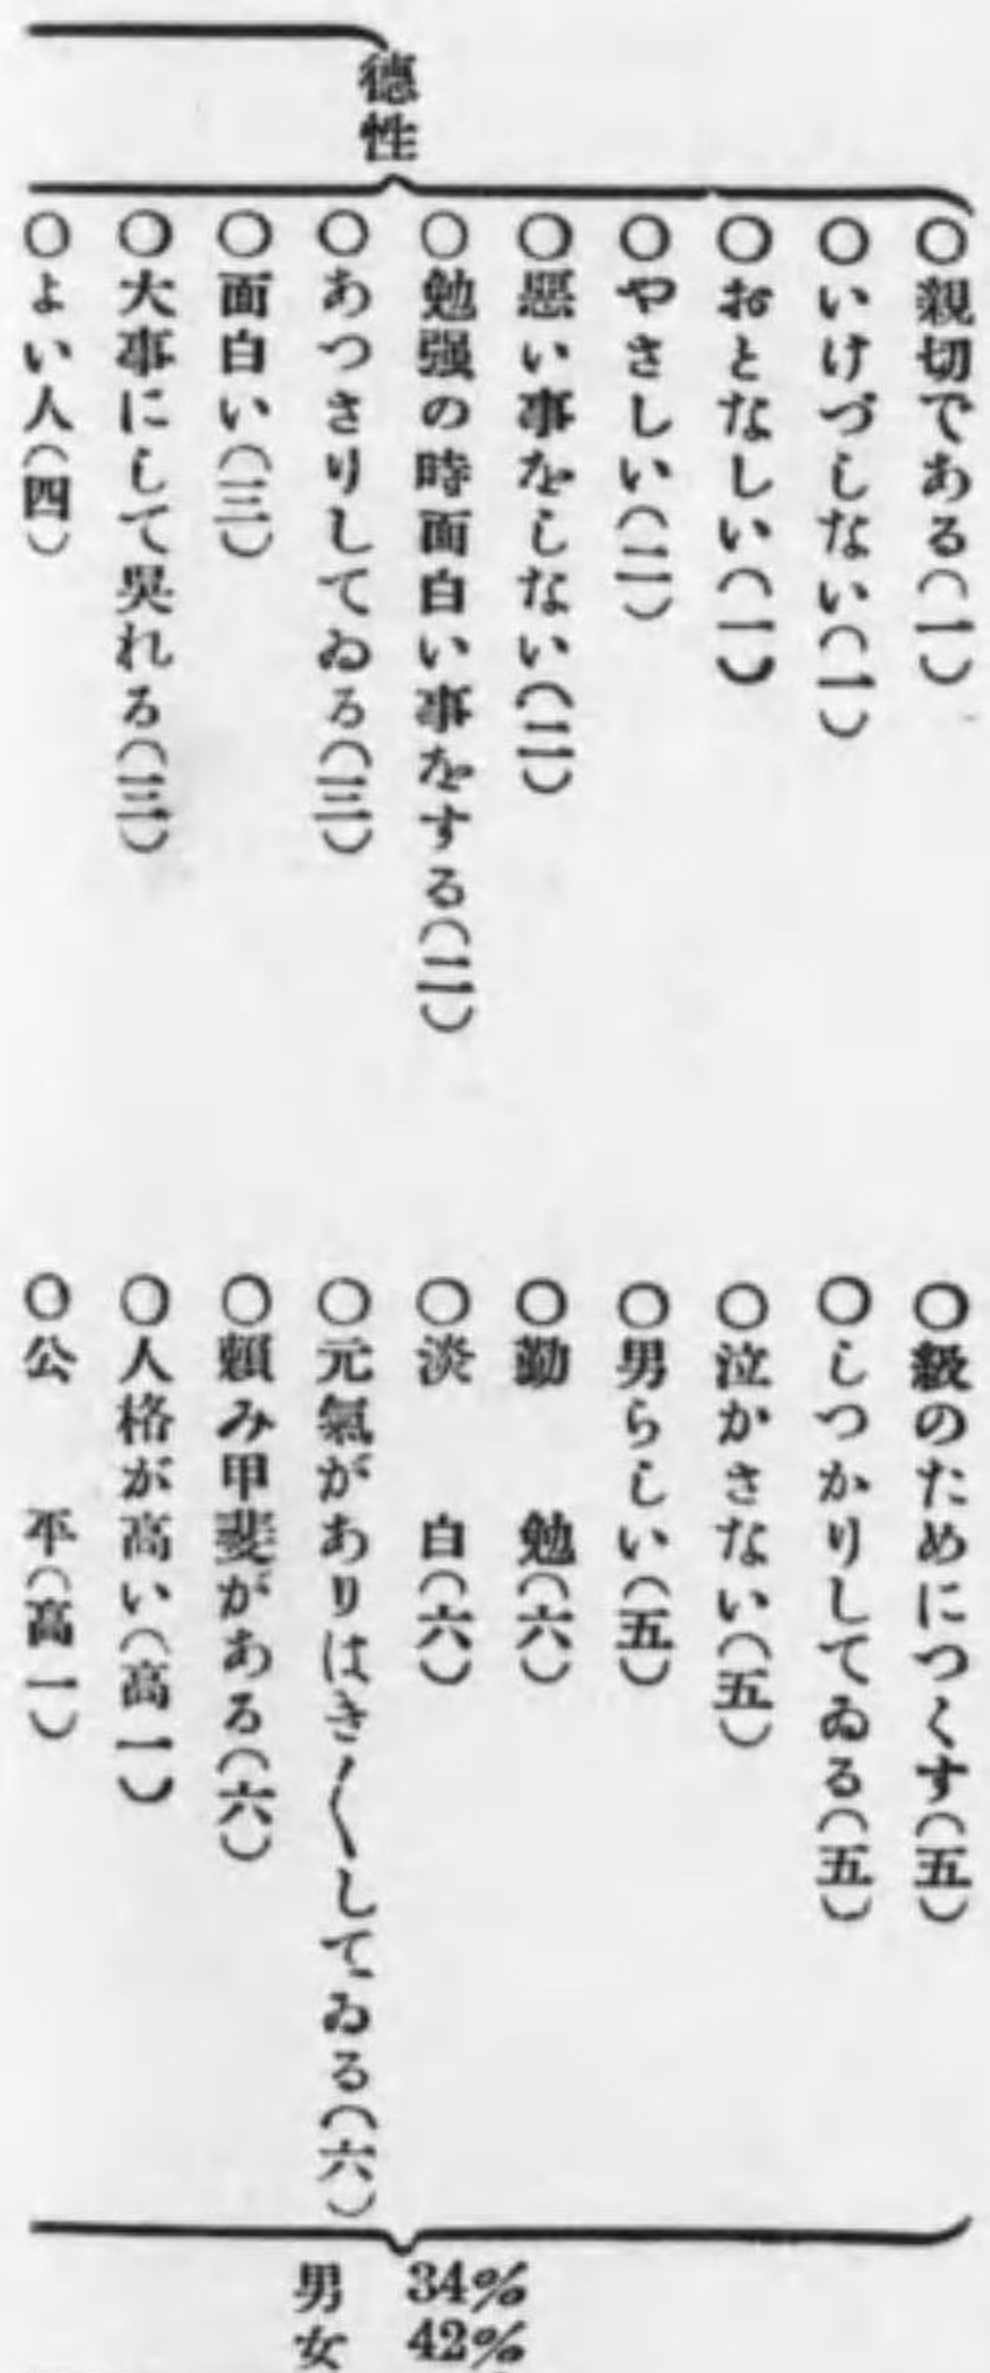 德性
○親切である(一)
○いけづしない(一)
○おとなしい(一)
○やさしい(二)
○惡い事をしない(二)
○勉强の時面白い事をする(二)
○あつさりしてゐる(三)
○面白い(三)
○大事にして吳れる(三)
○よい人(四)
○級のためにつくす(五)
○しつかりしてゐる(五)
○泣かさない(五)
○男らしい(五)
○勤勉(六)
○淡白(六)
○元氣がありはき〱してゐる(六)
○賴み甲斐がある(六)
○人格が高い(高一)
○公平(高一)
男 34%
女 42%